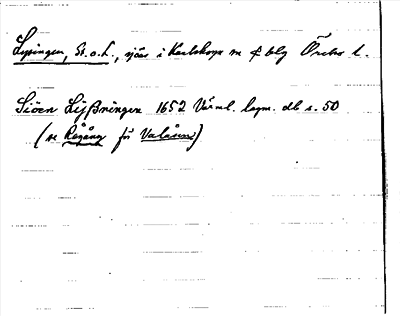 Lysingen, St. o. L., sjöar i Karlskoga sn o. bbg Örebro l.
Siöen Lijßningen 1652 Värml. lagm. db s. 50
(se Rågång för Valåsen)